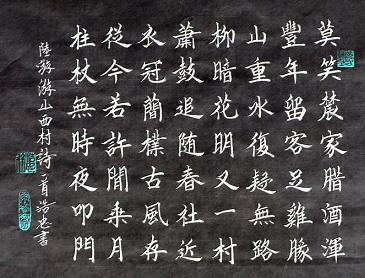 莫笑農家腊酒渾
豐年留客足雞豚
山重水復疑無路
柳暗花明又一村
蕭鼓追随春社近
衣冠簡樸古風存
從今若許閒乘月
拄杖無時夜叩門
陸游游山西村詩 浩忠書